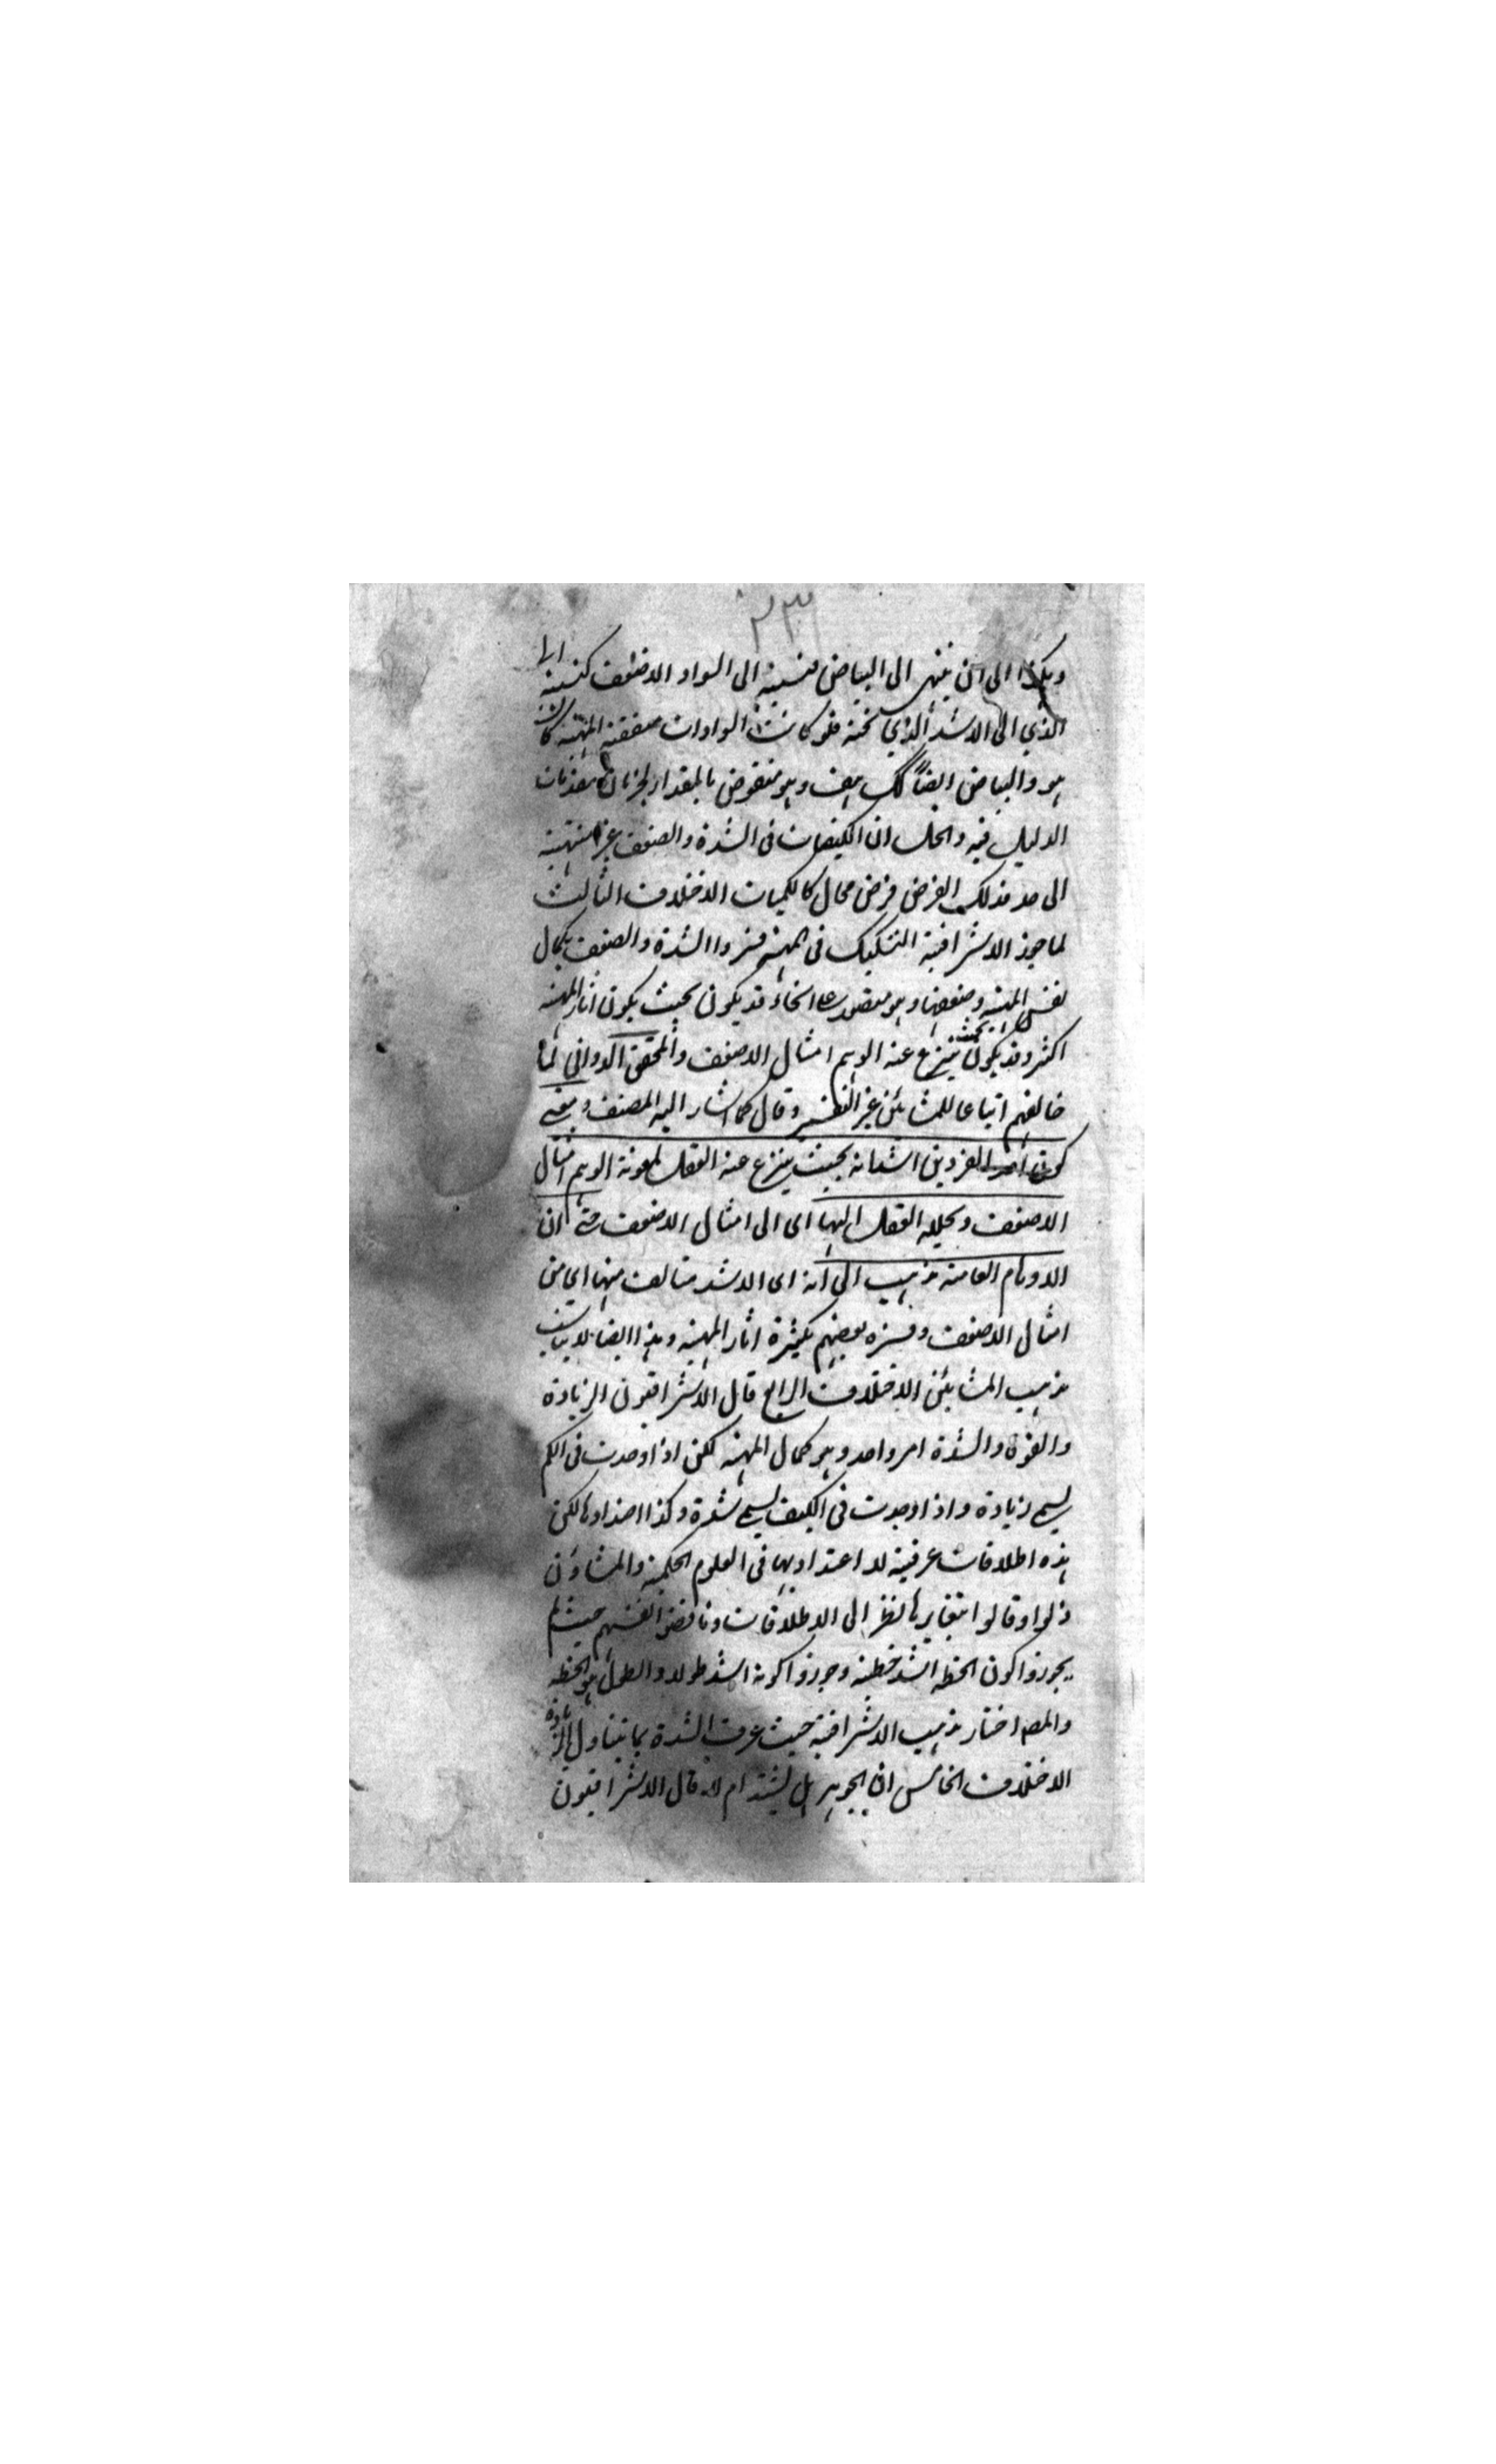 ٢٣
وهكذا الى ان ينتهى الى البياض فنسبته الى السواد الاضعف كنسبته
الذي الى الاشد الذي تحته فلو كانت السوادات متفقة المهية كان
هو والبياض ايضاً كك هف وهو منقوض بالمقدار لجريان مقدمات
الدليل فيه والحل ان الكيفيات فى الشدة والضعف غير منتهية
الى حد فذلك الفرض فرض محال كالكميات الاختلاف الثالث
لما جوز الاشراقية التشكيك فى المهية فسروا الشدة والضعف بكمال
نفس المهية وضعفها وهو متصور على انحاء قد يكون بحيث يكون اثار المهية
اكثر وقد يكون بحيث ينتزع عنه الوهم امثال الاضعف والمحقق الدوانى لما
خالفهم اتباعا للمشائين غير التفسير وقال كما اشار اليه المصنف ومعنى
كون احد الفردين اشد انه بحيث ينتزع عنه العقل بمعونة الوهم امثال
الاضعف ويحلله العقل اليها اى الى امثال الاضعف حتى ان
الاوهام العامة تذهب الى انه اى الاشد متالف منها اي من
امثال الاضعف وفسره بعضهم بكثرة اثار المهية وهذا ايضا لا يناسب
مذهب المشائين الاختلاف الرابع قال الاشراقيون الزيادة
والقوة والشدة امر واحد وهو كمال المهية لكن اذا وجدت فى الكم
يسمى زيادة واذا وجدت فى الكيف يسمى شدة وكذا اضدادها لكن
هذه اطلاقات عرفية لا اعتداد بها فى العلوم الحكمية والمشاؤن
ذلوا وقالوا بتغايرها نظرا الى الاطلاقات وناقضوا انفسهم حيث لم
يجوزوا كون الخط اشد خطية وجوزوا كونه اشد طولا والطول هو الخط
والمصـ اختار مذهب الاشراقية حيث عرف الشدة بما يتناول الزيادة
الاختلاف الخامس ان الجوهر هل يشتد ام لا قال الاشراقيون